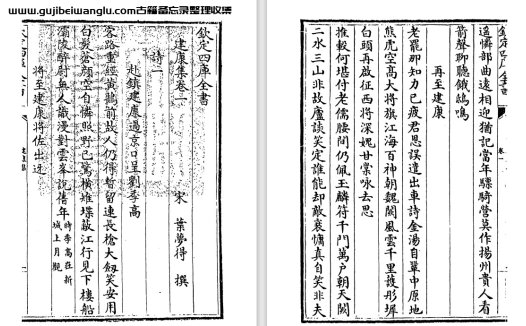 www.gujibeiwanglu.com古籍备忘录整理收集
欽定四庫全書
建康集卷一
宋 葉夢得 撰
詩一
赴鎮建康過京口呈劉季高
客路重經黄鵠前故人仍得暫留連長槍大劔笑安用
白髪蒼顔空自憐照野已驚横雉堞蔽江行見下樓船
灞陵醉尉無人識漫對雲峯說舊年時季高在新城上月觀
將至建康將佐出迎
欽定四庫全書
遥憐部曲遠相迎猶記當年驃騎營莫作揚州貴人看
箭聲聊聽餓鴟鳴
再至建康
老罷那知力已疲君恩誤遣出車詩金湯自鞏中原地
熊虎空高大將旗江海百神朝魏闕風雲千里護彤墀
白頭再啟征西將深媿甘棠咏去思
推轂何堪付老儒腰間仍佩玉麟符千門萬戸朝天闕
二水三山非故廬談笑定誰能却敵衰慵真自笑非夫